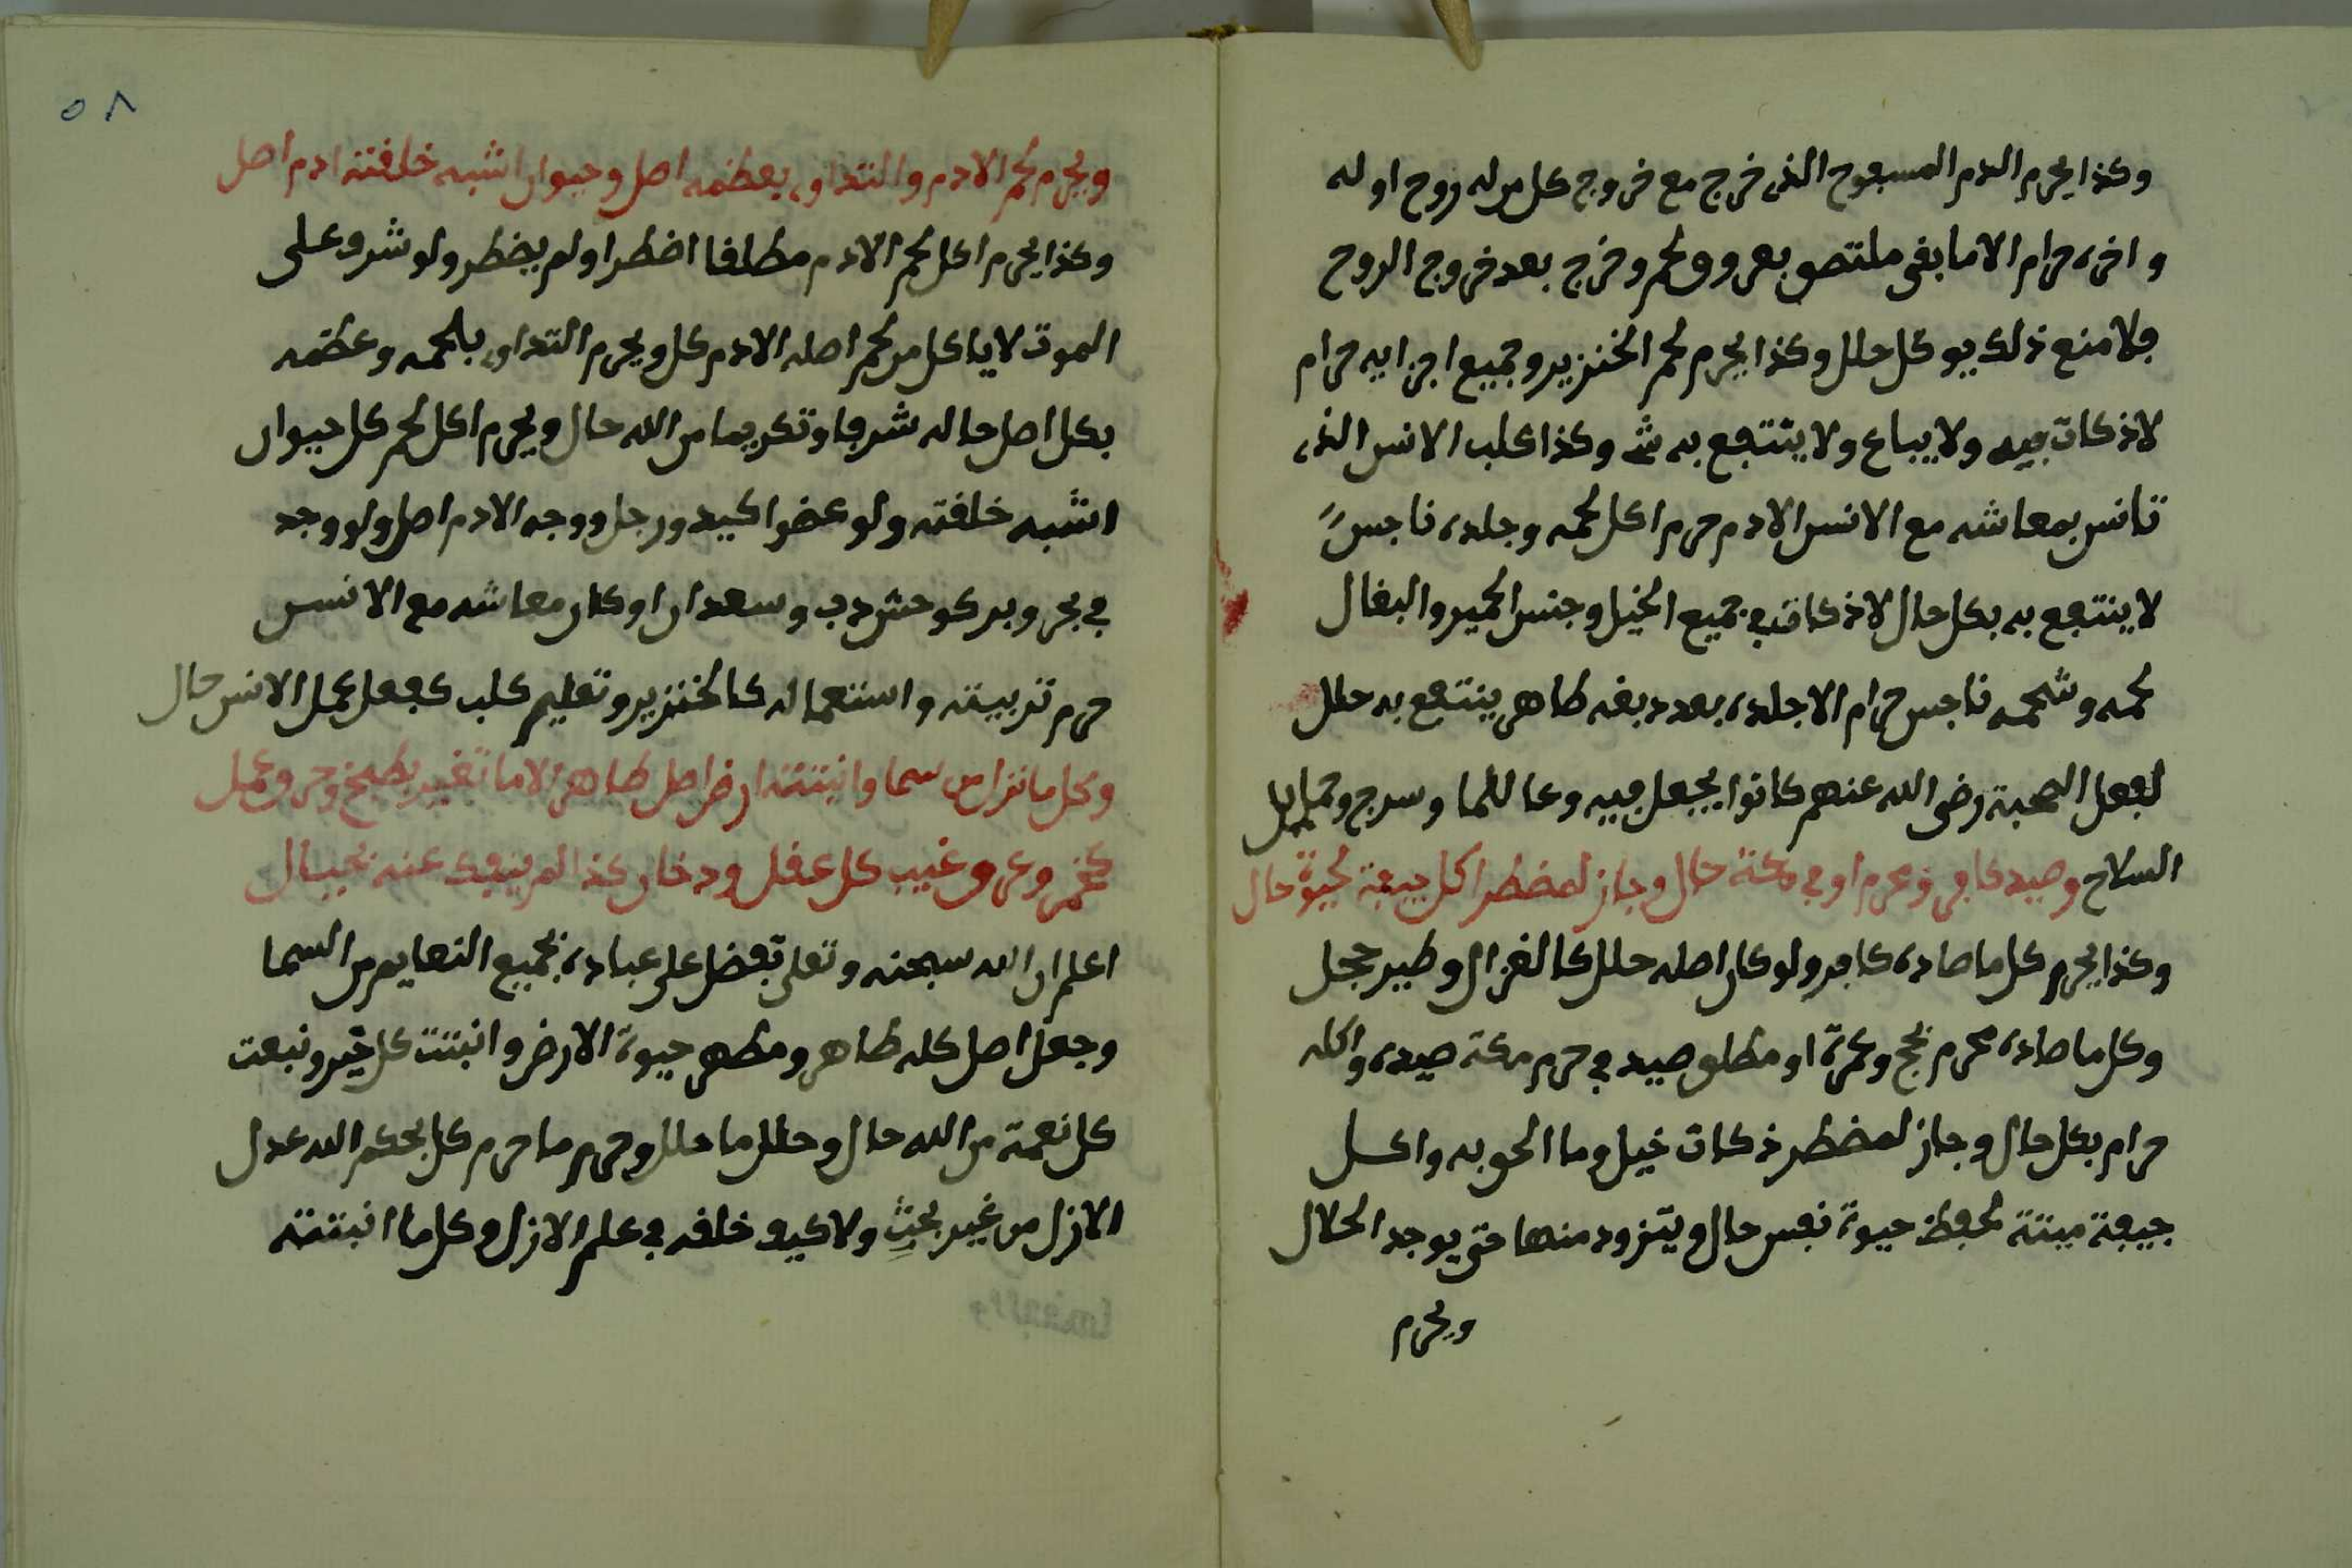 وكذا يحرم الدم المسفوح الذى خرج مع خروج كل من له روح اوله
واخره حرام الا ما بقى ملتصق بعروق لحم وخرج بعد خروج الروح
فلا منع ذلك يوكل حلل وكذا يحرم لحم الخنزير وجميع اجزايه حرام
لا ذكات فيه ولا يباع ولا ينتفع به شى وكذا كلب الانس الذى
تانس بمعاشه مع الانس الادم حرم اكل لحمه وجلده ناجس
لا ينتفع به بكل حال لا ذكاة فى جميع الخيل وجنس الحمير والبغال
لحمه وشحمه ناجس حرام الا جلده بعد دبغه طاهر ينتفع به حلل
لفعل الصحبة رضى الله عنهم كانوا يجعل فيه وعا للما وسرج وحمايل
السلاح وصيد كافر ومحرم او فى مكة حال وجاز لمضطر اكل جيفة لحيوة حال
وكذا يحرم كل ما صاده كافر ولو كان اصله حلل كالغزال وطير حجل
وكل ما صاده محرم بحج وعمرة او مطلق صيد فى حرم مكة صيده واكله
حرام بكل حال وجاز لمضطر ذكات خيل وما الحق به واكل
جيفة ميتة لحفظ حيوة نفس حال ويتزود منها حتى يوجد الحلال
ويحرم
٥٨
ويحرم لحم الادم والتداوى بعظمه اصل وحيوان اشبه خلقته ادم اصل
وكذا يحرم اكل لحم الادم مطلقا اضطر او لم يضطر ولو شرف على
الموت لا ياكل من لحم اصله الادم كل ويحرم التداوى بلحمه وعظمه
بكل اصل حاله شرفا وتكريما من الله حال ويحرم اكل لحم كل حيوان
اشبه خلقته ولو عضوا كيد ورجل ووجه الادم اصل ولو وجد
فى بحر وبر كوحش دب وسعدان او كان معاشه مع الانس
حرم تربيته واستعماله كالخنزير وتعليم كلب كفعل عمل الانس حال
وكل ما نزل من سما وانبتته ارض اصل طاهر الا ما تغير بطبخ وحرق عمل
كخمر وعرق غيب كل عقل ودخان كذا لم ينفك عنه بحال
اعلم ان الله سبحنه وتعلى تفضل على عباده بجميع النعايم من السما
وجعل اصل كله طاهر ومطهر حيوة الارض وانبتت كل خير ونبعت
كل نعمة من الله حال وحلل ما حلل وحرم ما حرم كل بحكم الله عدل
الازل من غير بحث ولا كيف خلقه فى علم الازل وكل ما انبتته